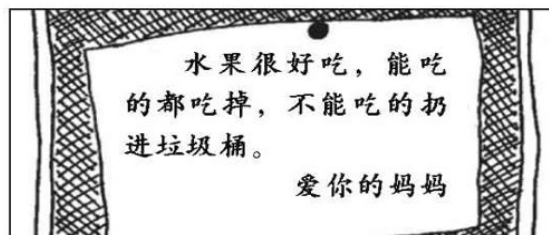 水果很好吃，能吃
的都吃掉，不能吃的扔
进垃圾桶。
爱你的妈妈